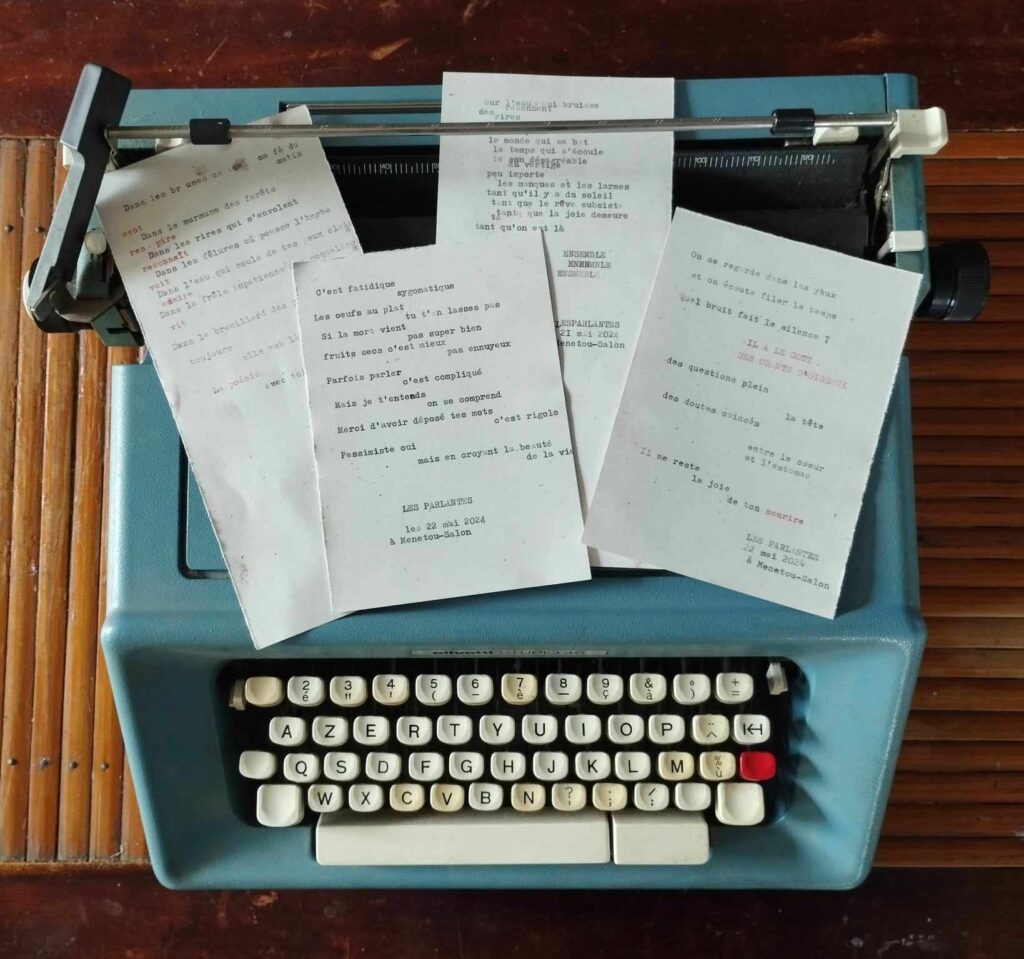 Dans les br umes de
ce fé du
matin
Dans le murmure des forêts
ment
res pire
Dans les rires qui s'envolent
reconnaît
Dans les fêlures où pousse l'herbe
voit
Dans l'eau qui coule de tes yeux
admire
Dans la frêle impatience
coquelicot
vit
Dans le brouillard des
toujours
elle est là
La poésie
avec toi
C'est fatidique
zygomatique
Les oeufs au plat
tu t'en lasses pas
Si la mort vient
pas super bien
fruits secs c'est mieux
pas ennuyeux
Parfois parler
c'est compliqué
Mais je t'entends
on se comprend
Merci d'avoir déposé tes mots
c'est rigolo
Pessimiste oui
mais en croyant la beauté
de la vie
LES PARLANTES
les 22 mai 2024
à Menetou-Salon
Sur l'eau qui bruisse
des résonnent
rires
le monde qui se bat
le temps qui s'écoule
le son désagréable
du vertige
peu importe
les manques et les larmes
tant qu'il y a du soleil
tant que le rêve subsiste
tantq que la joie demeure
ta
tant qu'on est là
ENSEMBLE
ENSEMBLE
ENSEMBLE
LESPARLANTES
21 mai 2024
Menetou-Salon
On se regarde dans les yeux
et on écoute filer le temps
Quel bruit fait le silence ?
IL A LE GOUT
DES CHANTS D'OISEAUX
des questions plein
la tête
des doutes coincés
entre le coeur
et l'estomac
Il me reste
la joie
de ton sourire
LES PARLANTES
22 mai 2024
à Menetou-Salon
olivetti STUDIO 46
2 3 4 5 6 7 8 9 & ° +
é " ' ( - è _ ç à ) =
A Z E R T Y U I O P ¨ ^
Q S D F G H J K L M % ù
W X C V B N ? , . ; / :